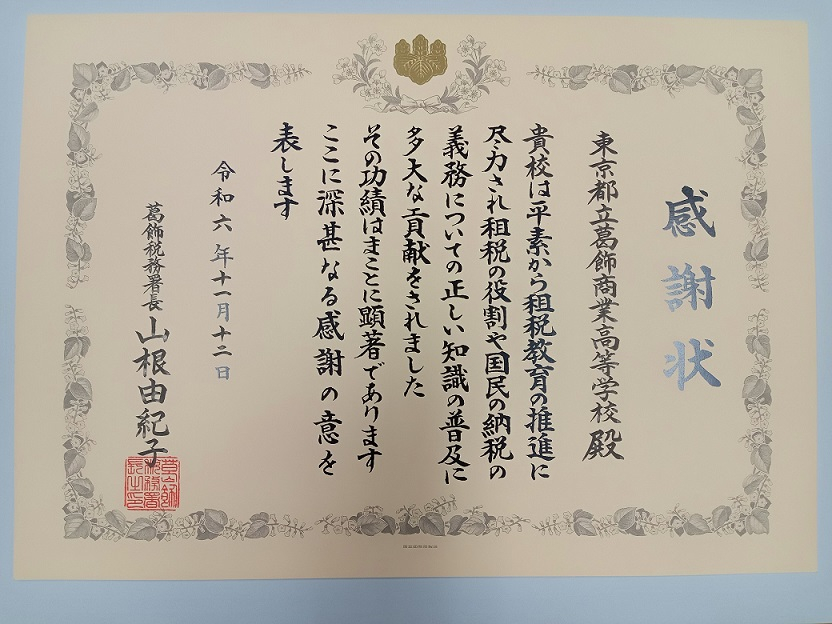 感謝状
東京都立葛飾商業高等学校 殿
貴校は平素から租税教育の推進に
尽力され租税の役割や国民の納税の
義務についての正しい知識の普及に
多大な貢献をされました
その功績はまことに顕著であります
ここに深甚なる感謝の意を
表します
令和六年十一月十二日
葛飾税務署長 山根由紀子
葛飾
税務署
長之印